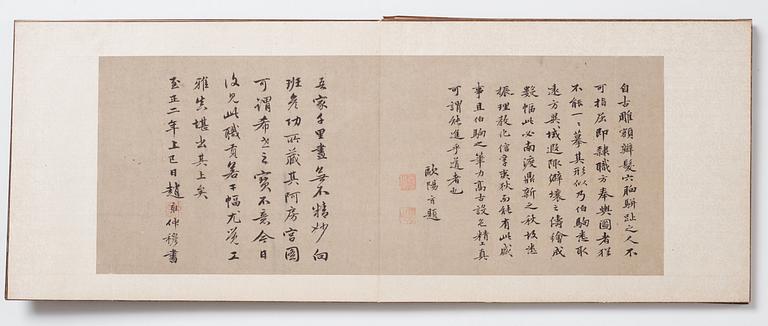 自古雕額辮髮穴胸駢趾之人不
可指屈即隸職方奉輿圖者猶
不能一一摹其形似乃伯駒悉取
遠方異域遐陬僻壤之儔繪成
數幅此必南渡鼎新之秋故悉
振理教化信孚夷狄而能有此盛
事且伯駒之筆力高古設色精工真
可謂能進乎道者也
歐陽玄題
吾家千里畫無不精妙向
班彥功所藏其阿房宮圖
可謂希世之寶不意今日
復見此職貢若干幅尤覺工
雅其堪出其上矣
至正二年上巳日趙雍仲穆書